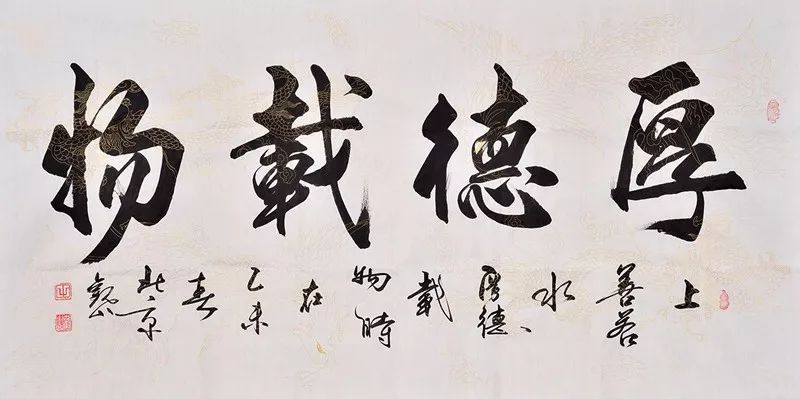 厚德載物
上善若水厚德載物時在乙未春北京